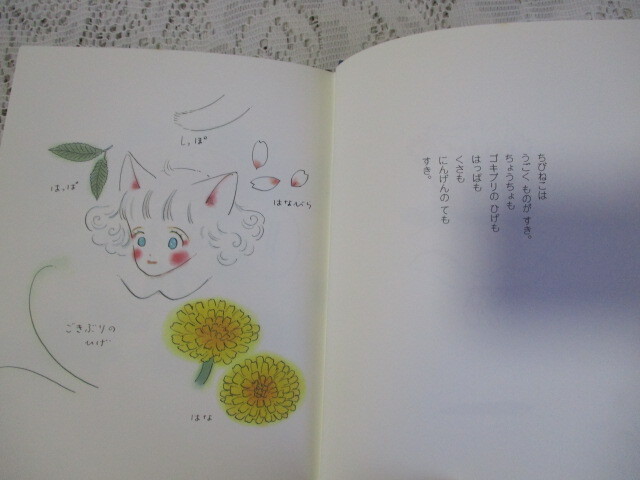 ちびねこは
うごく ものが すき。
ちょうちょも
ゴキブリの ひげも
はっぱも
くさも
にんげんの ても
すき。
しっぽ
はっぱ
はなびら
ごきぶりの
ひげ
はな